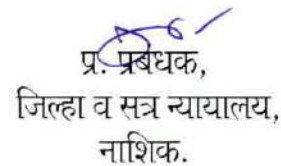 प्र. प्रबंधक,
जिल्हा व सत्र न्यायालय,
नाशिक.